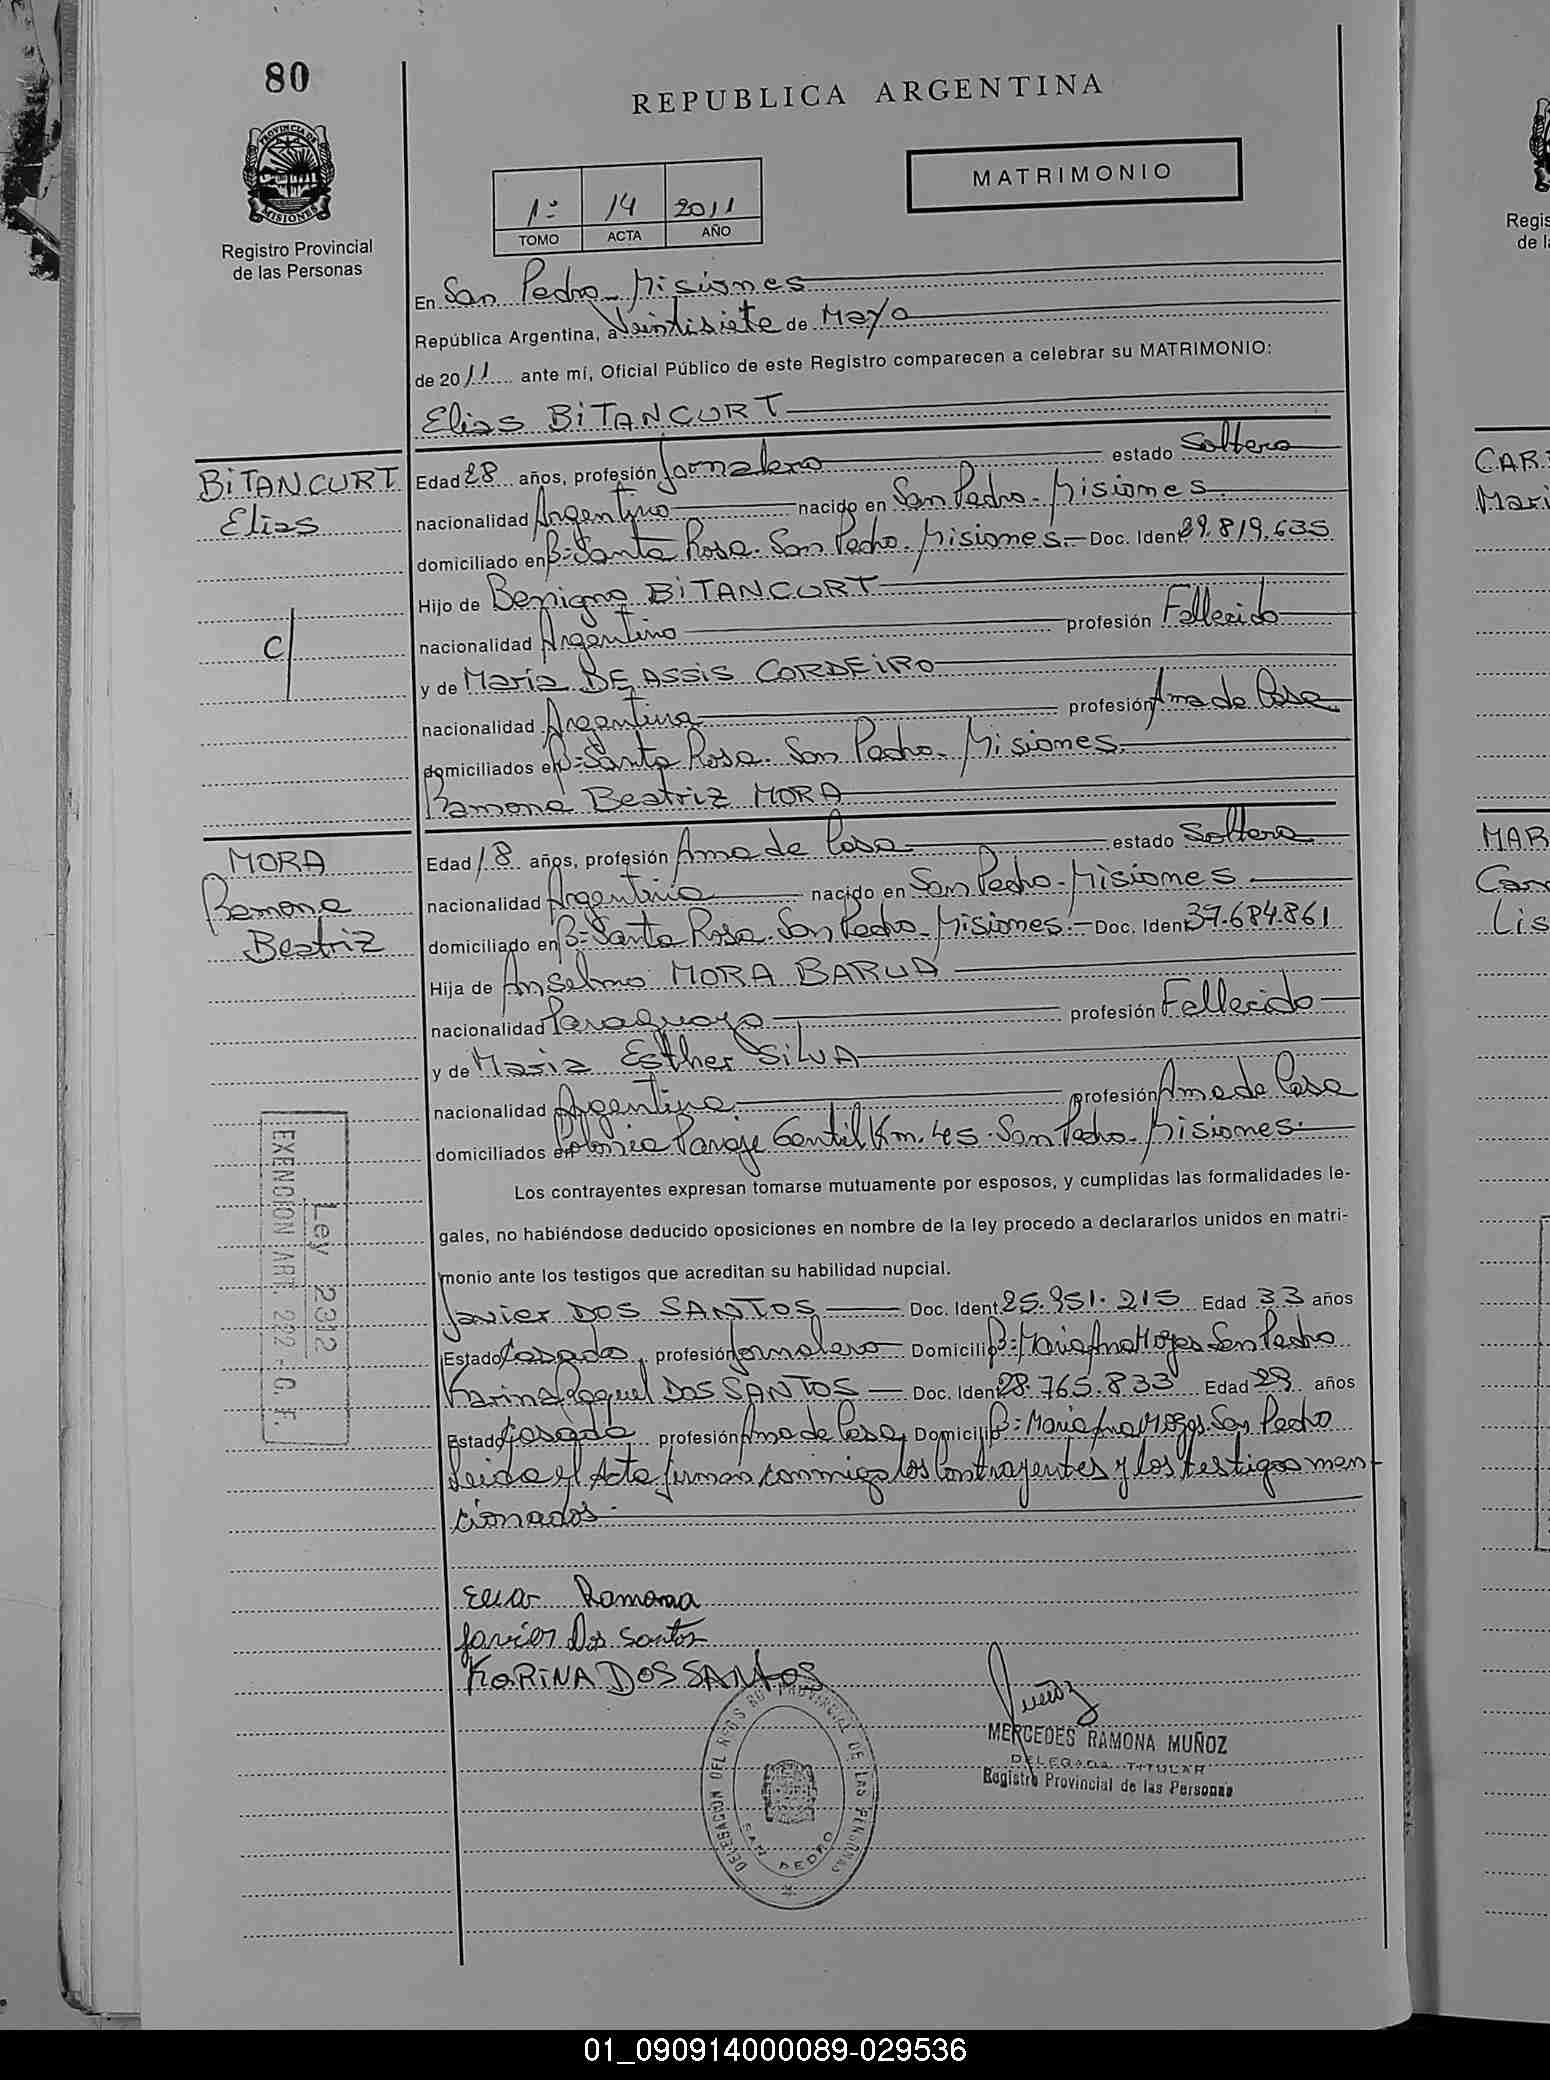 80
REPUBLICA ARGENTINA
PROVINCIA DE
MISIONES
Registro Provincial
de las Personas
MATRIMONIO
1º 14 2011
TOMO ACTA AÑO
En San Pedro - Misiones
República Argentina, a Veintisiete de Mayo
de 2011 ante mí, Oficial Público de este Registro comparecen a celebrar su MATRIMONIO:
Elias BiTANCURT
BiTANCURT
Elias
C/
Edad 28 años, profesión Jornalero estado Soltero
nacionalidad Argentino nacido en San Pedro - Misiones.
domiciliado en Bº Santa Rosa. San Pedro. Misiones. Doc. Ident. 29.819.635
Hijo de Benigno BiTANCURT
nacionalidad Argentino profesión Fallecido
y de María DE ASSiS CORDEiRO
nacionalidad Argentina profesión Ama de Casa
domiciliados en Bº Santa Rosa. San Pedro - Misiones.
Ramona Beatriz MORA
MORA
Ramona
Beatriz
Edad 18 años, profesión Ama de Casa estado Soltera
nacionalidad Argentina nacido en San Pedro - Misiones
domiciliado en Bº Santa Rosa. San Pedro - Misiones. Doc. Ident. 37.684.861
Hija de Anselmo MORA BARUA
nacionalidad Paraguayo profesión Fallecido
y de Maria Esther SiLVA
nacionalidad Argentina profesión Ama de Casa
domiciliados en Colonia Paraje Gentil Km. 45. San Pedro - Misiones.
Los contrayentes expresan tomarse mutuamente por esposos, y cumplidas las formalidades le-
gales, no habiéndose deducido oposiciones en nombre de la ley procedo a declararlos unidos en matri-
monio ante los testigos que acreditan su habilidad nupcial.
Ley 2312
EXENCION ART. 222 - C. F.
Javier DOS SANTOS Doc. Ident. 25.951.215 Edad 33 años
Estado Casado profesión Jornalero Domicilio Bº Maria Ana Mogas San Pedro
Karina Raquel DOS SANTOS Doc. Ident. 28.765.833 Edad 29 años
Estado Casada profesión Ama de Casa Domicilio Bº Maria Ana Mogas San Pedro
Leida el Acta firman conmigo los Contrayentes y los testigos men-
cionados.
Ramona
Javier Dos Santos
KaRiNA DOS SANTOS
Muñoz
MERCEDES RAMONA MUÑOZ
DELEGADA TITULAR
Registro Provincial de las Personas
DELEGACION DEL REGISTRO PROVINCIAL DE LAS PERSONAS
SAN PEDRO
Regis
de la
CAR
Mari
MAR
Car
Lis
01_090914000089-029536